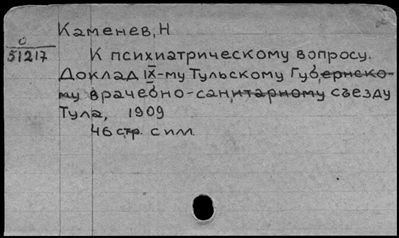 Каменев, Н
0
51217
К психиатрическому вопросу.
Доклад IX-му Тульскому Губернско-
му врачебно-санитарному съезду
Тула, 1909
46 стр. с илл.